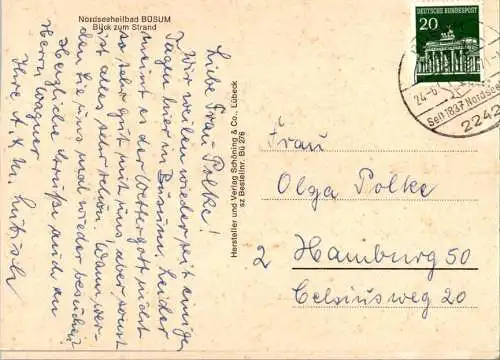 Nordseeheilbad BÜSUM
Blick zum Strand
Liebe Frau Polke!
Wir weilen wieder seit einigen
Tagen hier in Büsum. Leider
meint es der Wettergott nicht
so sehr gut mit uns, aber sonst
ist alles sehr schön. Wann wer-
den Sie uns mal wieder besuchen?
Herzliche Grüße auch an
Herrn Wagner
Ihre
Hersteller und Verlag Schöning & Co., Lübeck
sz Bestellnr. Bü 276
DEUTSCHE BUNDESPOST
20
24.-6.
Seit 1837 Nordsee
2242
Frau
Olga Polke
2 Hamburg 50
Celsiusweg 20